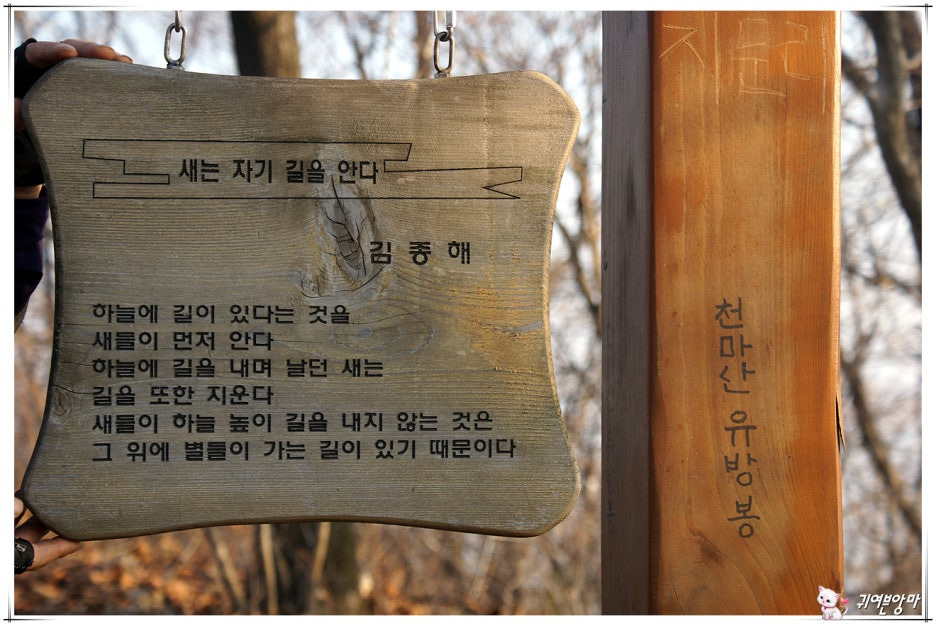 새는 자기 길을 안다
김종해
하늘에 길이 있다는 것을
새들이 먼저 안다
하늘에 길을 내며 날던 새는
길을 또한 지운다
새들이 하늘 높이 길을 내지 않는 것은
그 위에 별들이 가는 길이 있기 때문이다
천마산 유방봉
귀여븐앙마